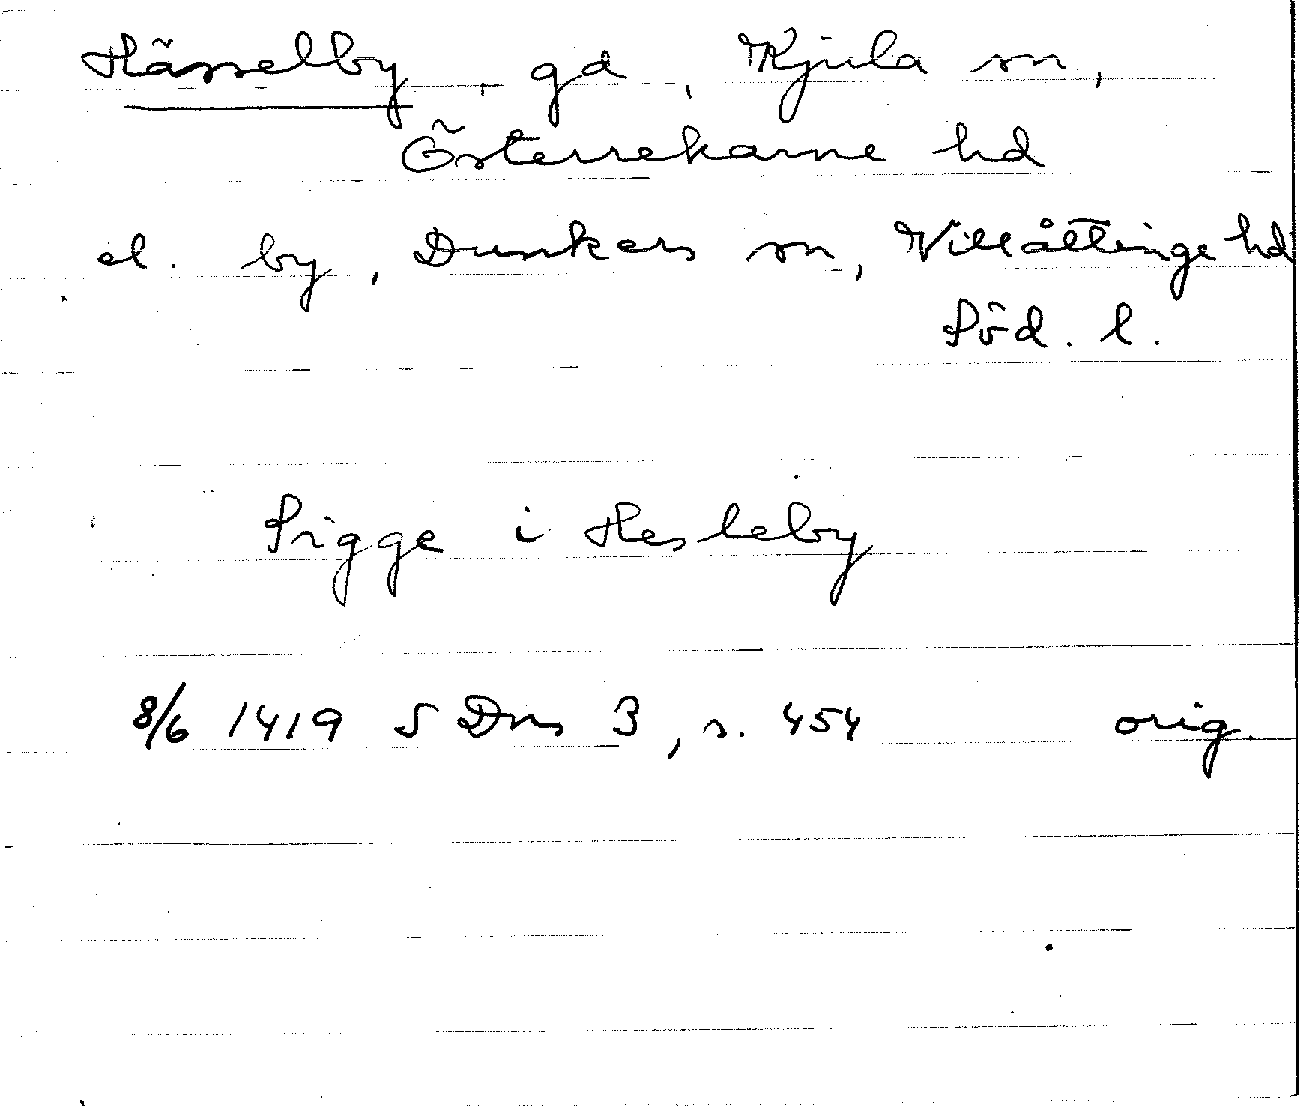 Hässelby, gd, Kjula sn,
Österrekarne hd
el. by, Dunkers sn, Villåttinge hd
Söd. l.
Sigge i Hesleby
8/6 1419 S Dns 3, s. 454 orig.